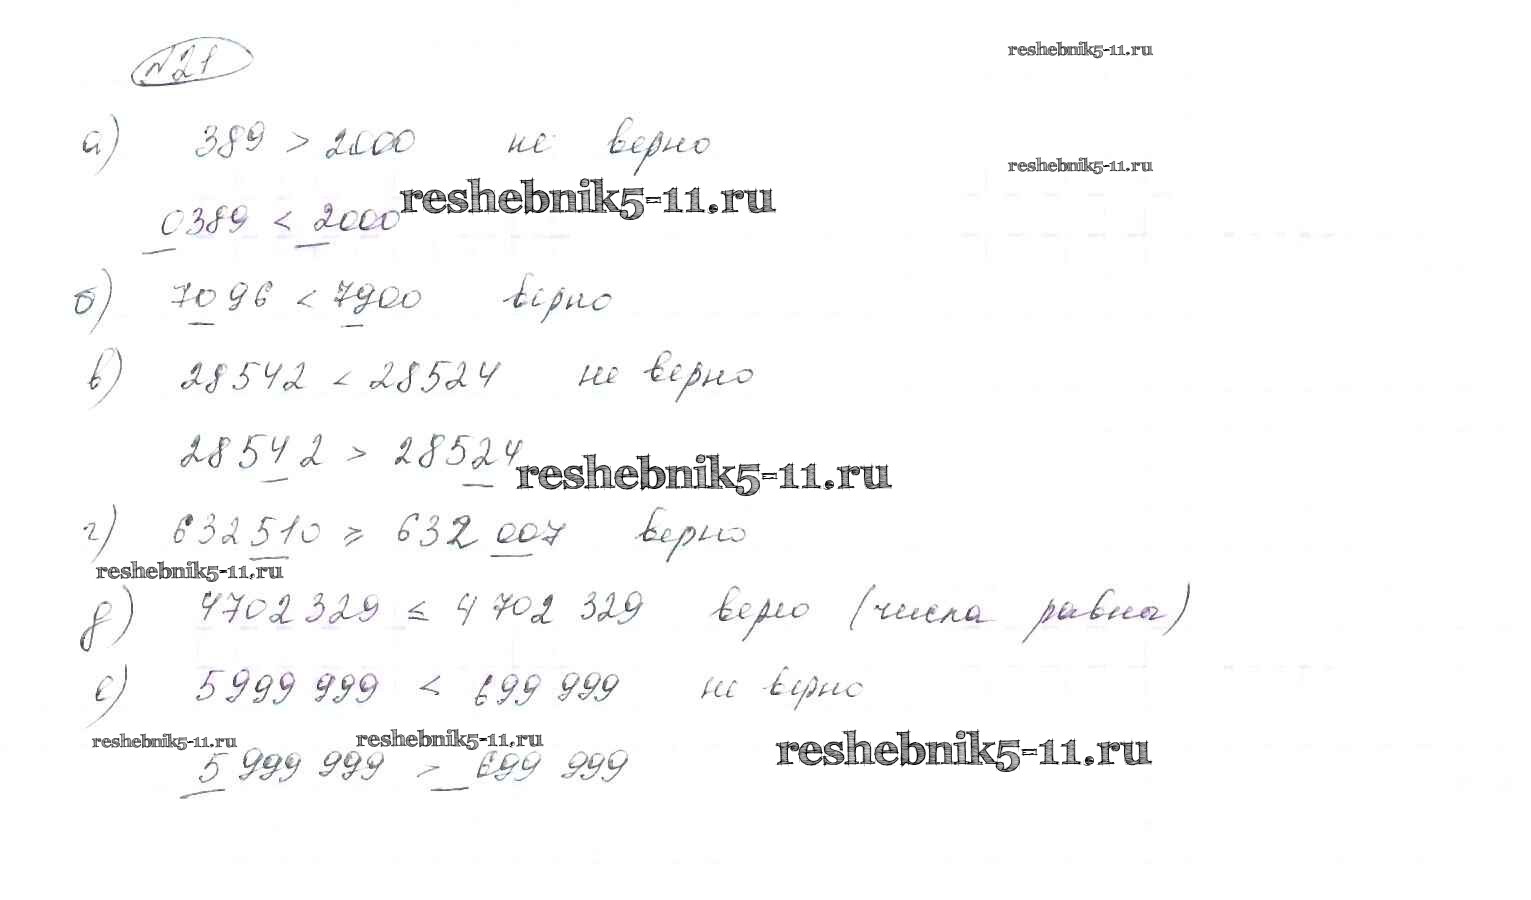 №21
reshebnik5-11.ru
а) 389 > 2000 не верно
reshebnik5-11.ru
reshebnik5-11.ru
0389 < 2000
б) 7096 < 7900 верно
в) 28542 < 28524 не верно
28542 > 28524
reshebnik5-11.ru
г) 632510 ⩾ 632 007 верно
reshebnik5-11.ru
д) 4702 329 ≤ 4 702 329 верно (числа равны)
е) 5999 999 < 699 999 не верно
reshebnik5-11.ru reshebnik5-11.ru
reshebnik5-11.ru
5 999 999 > 699 999